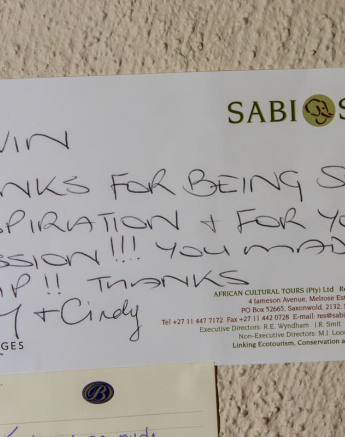 SABI S
VIN
NKS FOR BEING S
SPIRATION + FOR YO
SSION!!! YOU MAD
IP!! THANKS
Y + Cindy
GES
AFRICAN CULTURAL TOURS (Pty) Ltd Re
4 Jameson Avenue, Melrose Est
PO Box 52665, Saxonwold, 2132, S
Tel +27 11 447 7172 Fax +27 11 442 0728 E-mail: res@sabi
Executive Directors: R.E. Wyndham I.R. Smit
Non-Executive Directors: M.I. Loon
Linking Ecotourism, Conservation a
B